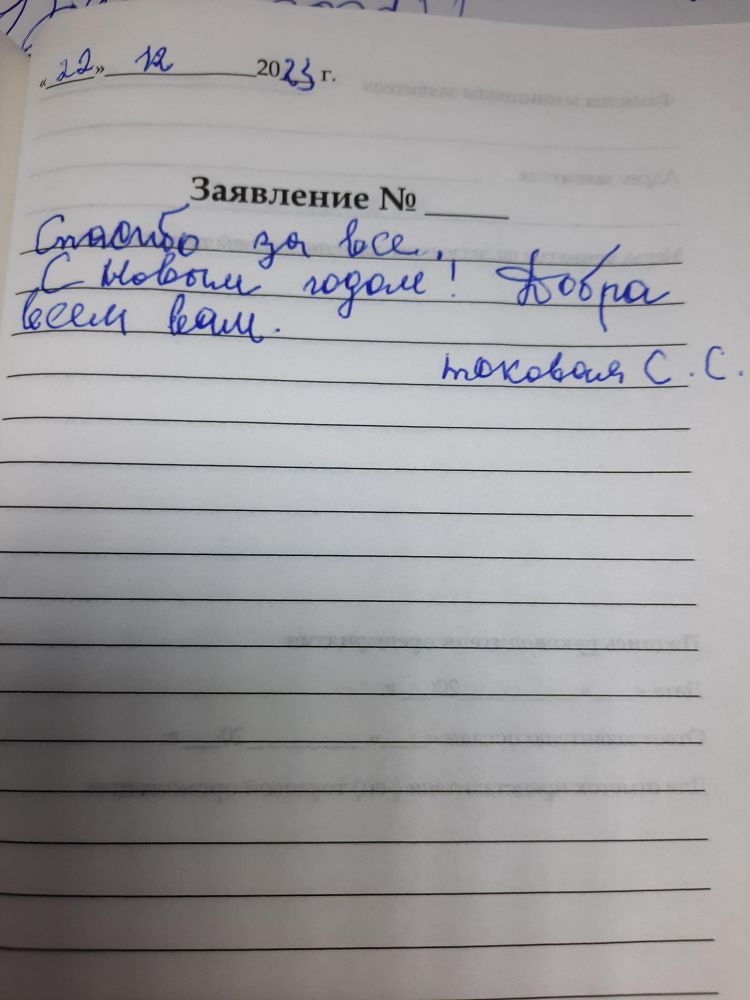 «22» 12 2023 г.
Заявление № ____
Спасибо за все.
С Новым годом! Добра
всем вам.
С. С.